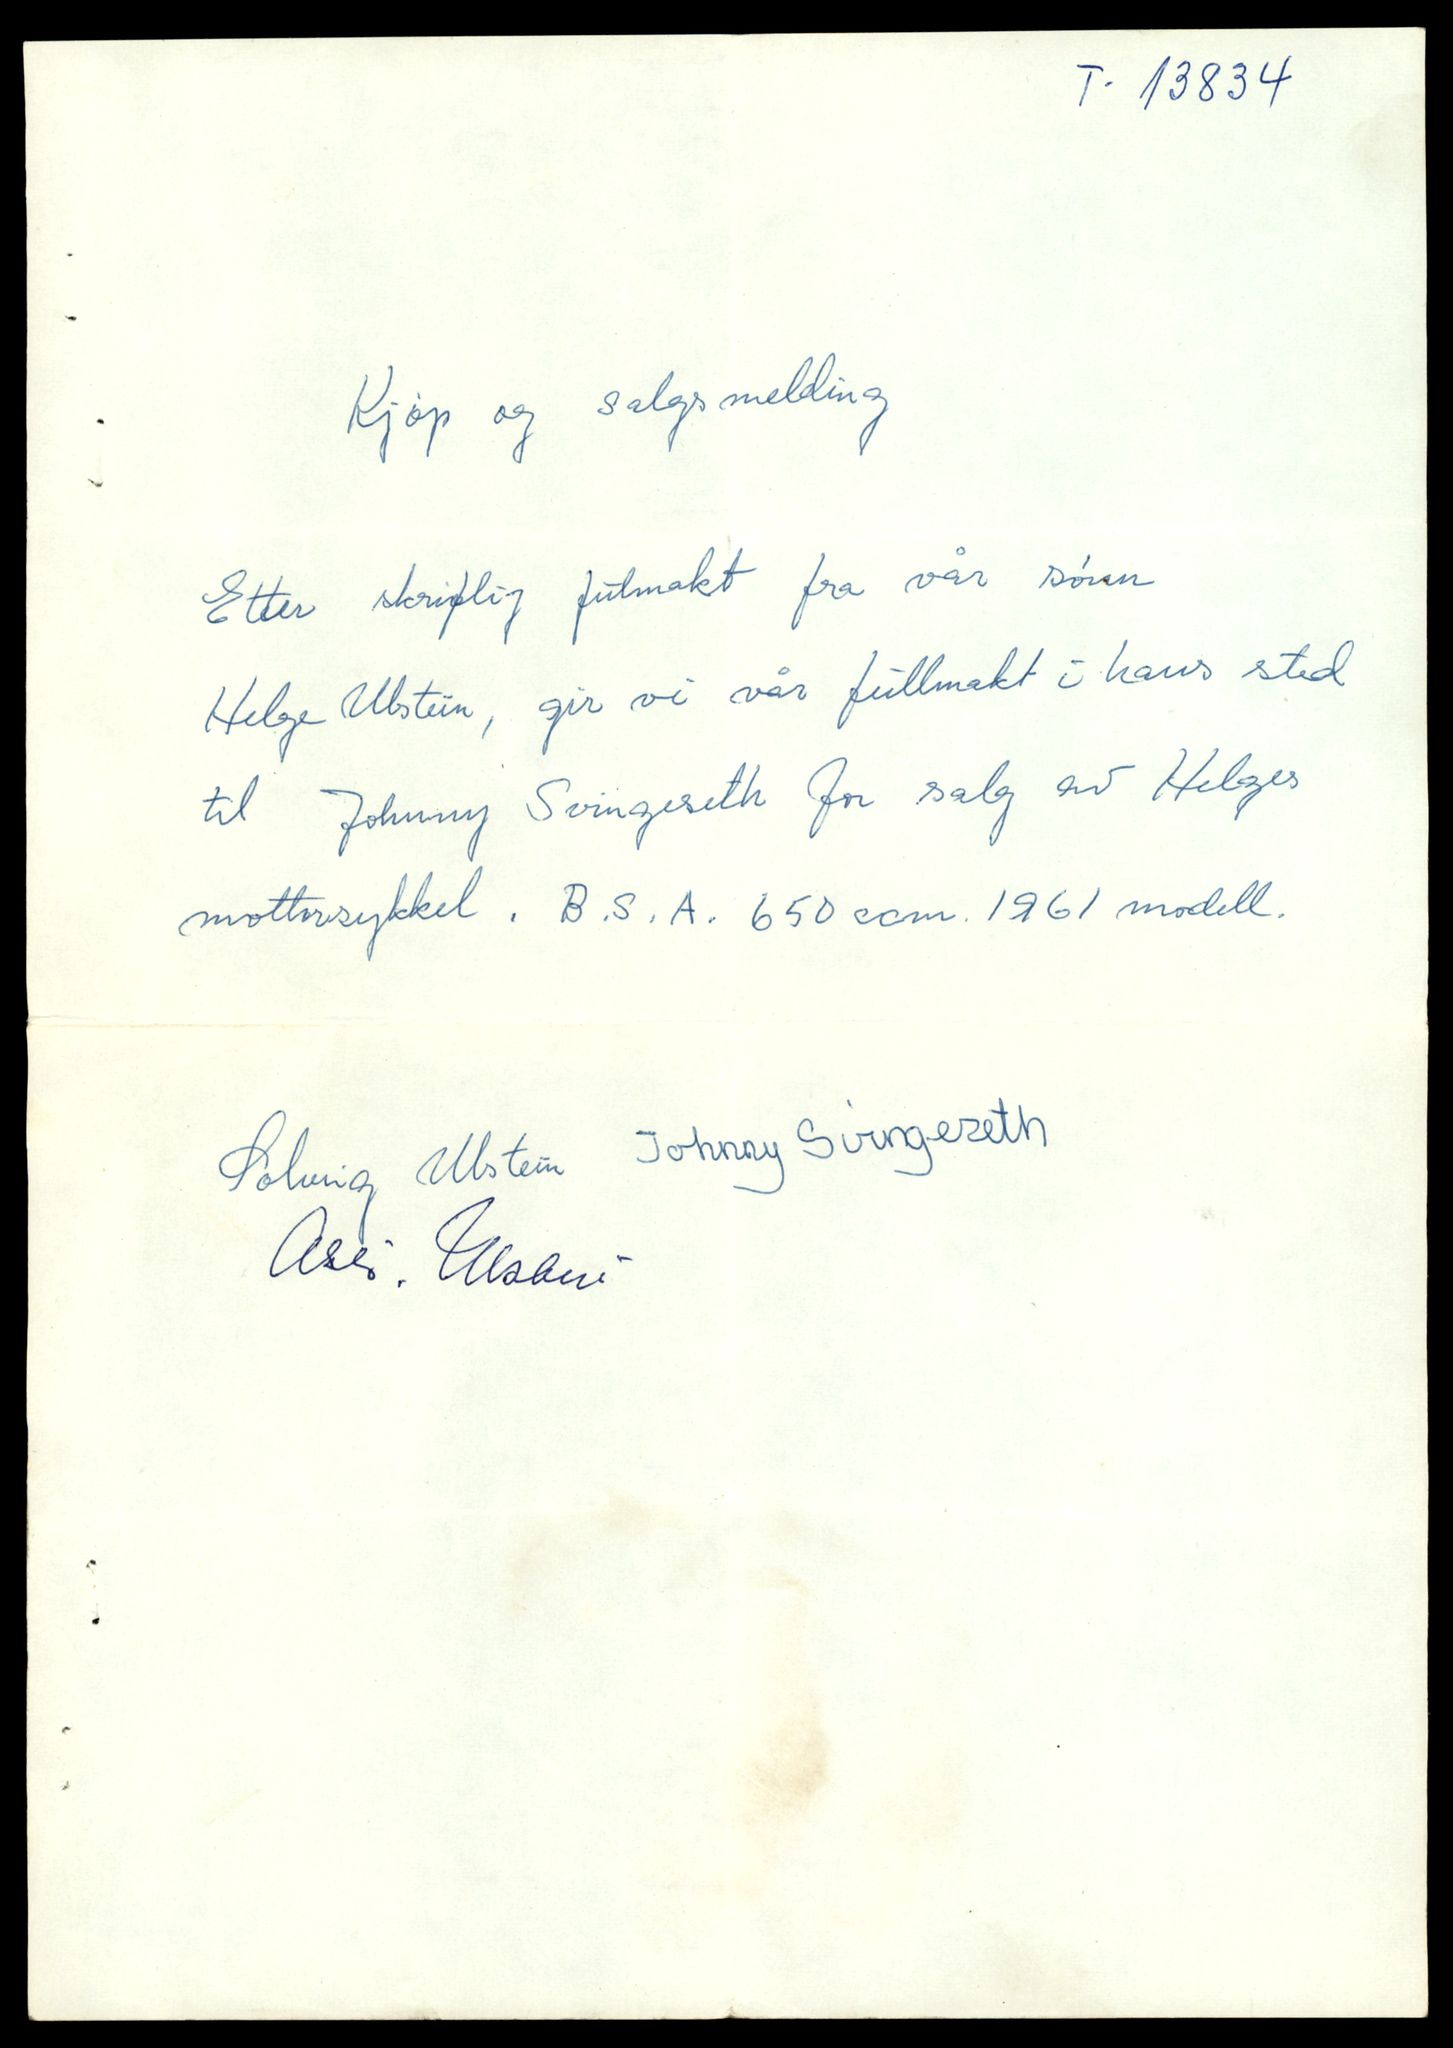 T. 13834
Kjøp og salgsmelding
Etter skriftlig fulmakt fra vår sønn
Helge Ulstein, gir vi vår fullmakt i hans sted
til Johnny Svingeseth for salg av Helges
mottorsykkel. B.S.A. 650 ccm. 1961 modell.
Solveig Ulstein Johnny Svingeseth
Ulstein